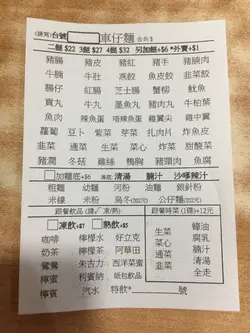 (請寫)台號 車仔麵 合共$
二餸 $22 3餸 $27 4餸 $32 另加餸+$6 *外賣+$1
豬腸 豬皮 豬紅 豬手 豬腩肉
牛腩 牛肚 燕餃 魚皮餃 韭菜餃
腸仔 紅腸 芝士腸 蟹柳 魷魚
貢丸 牛丸 墨魚丸 豬肉丸 牛柏葉
魚肉 辣魚蛋 唔辣魚蛋 雞翼尖 雞中翼
蘿蔔 豆卜 紫菜 芽菜 扎肉片 炸魚皮
韭菜 通菜 生菜 菜心 炸菜 甜酸菜
豬潤 冬菇 雞絲 鴨胸 豬頸肉 魚腐
加麵底+$6 湯底: 清湯 腩汁 沙嗲辣汁
粗麵 幼麵 河粉 油麵 銀針粉
米線 米粉 烏冬 公仔麵
跟餐飲品 跟餐時菜 (1碟)+12元
凍飲+$7 熱飲+$5
咖啡 檸檬水 好立克
奶茶 檸檬茶 阿華田
鴛鴦 朱古力 西洋菜蜜
檸蜜 利賓納 紙包飲品
檸賓 汽水 特飲* 號
生菜 蠔油
菜心 腐乳
通菜 腩汁
韭菜 清湯
全走